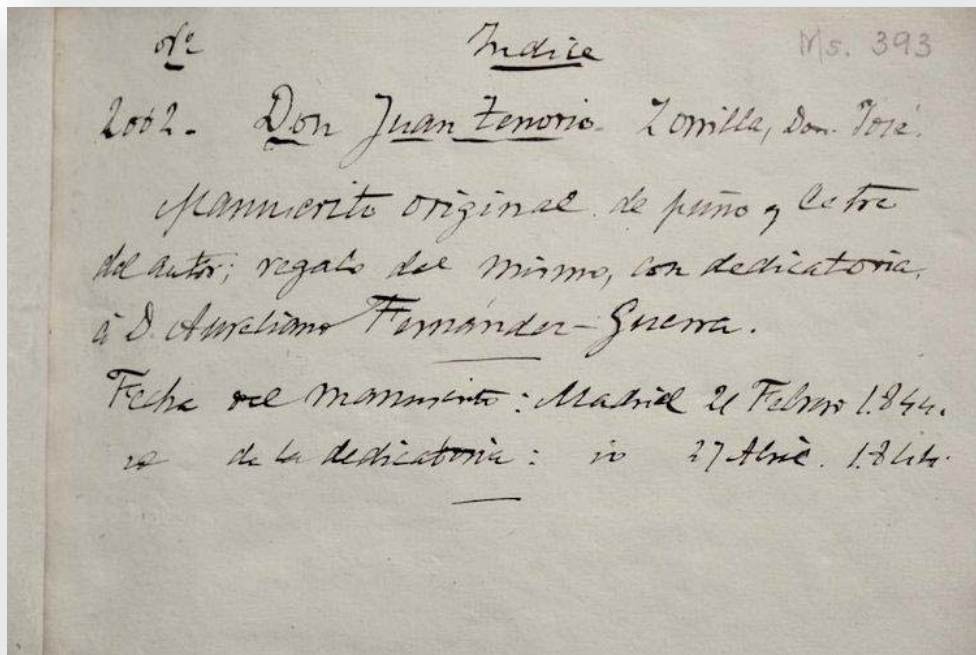 Nº Indice Ms. 393
2002. Don Juan Tenorio. Zorrilla, Don José.
Manuscrito original de puño y letra
del autor; regalo del mismo, con dedicatoria,
á D. Aureliano Fernández-Guerra.
Fecha del manuscrito: Madrid 21 Febrero 1.844.
id de la dedicatoria: id 27 Abril. 1.844.